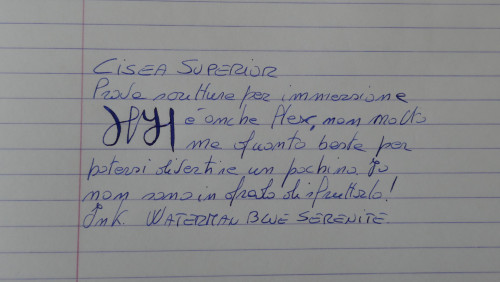 CISEA SUPERIOR
Prova scrittura per immersione
è anche Flex, non molto
ma quanto basta per
potersi divertire un pochino. Io
non sono in grado di sfruttarlo!
Ink. WATERMAN BLUE SERENITE.